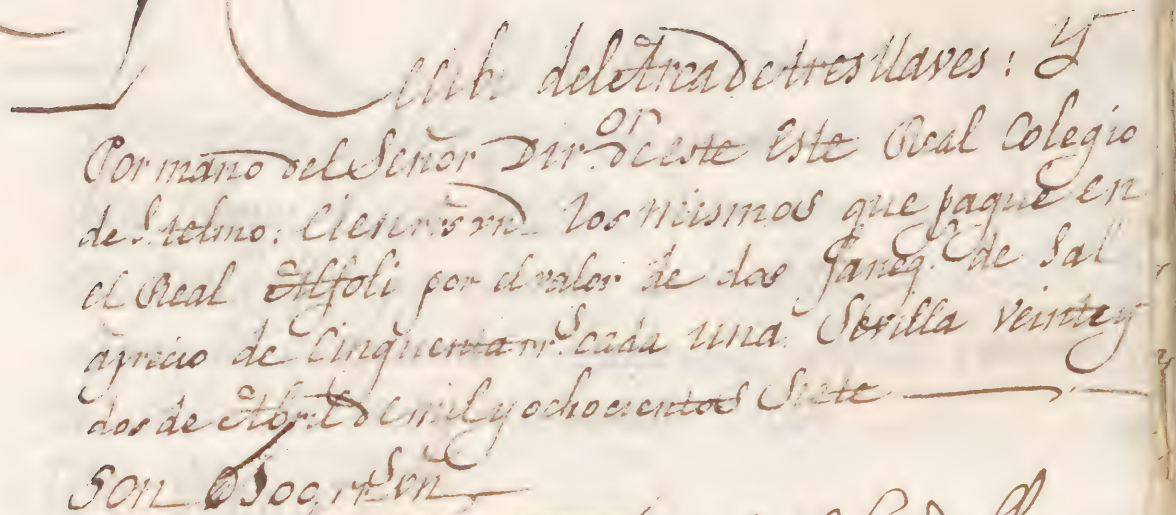 Recibi del Arca de tres llaves: Y
Por mano del Señor Dir.or de este este Real Colegio
de S. Telmo. Cien r.s vn. los mismos que paque en
el Real Alfoli por el valor de dos faneg.s de Sal
aprecio de Cinquenta rr.s cada una. Sevilla veinte y
dos de Abril de mil y ochocientos Siete
Son 100 r.s vn.